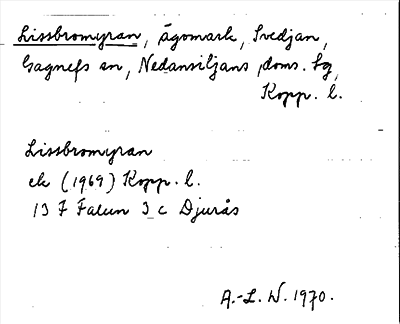 Lissbromyran, ägomark, Svedjan,
Gagnefs sn, Nedansiljans doms. hg,
Kopp. l.
Lissbromyran
ek (1969) Kopp. l.
13 F Falun 3 c Djurås
A.-L. W. 1970.